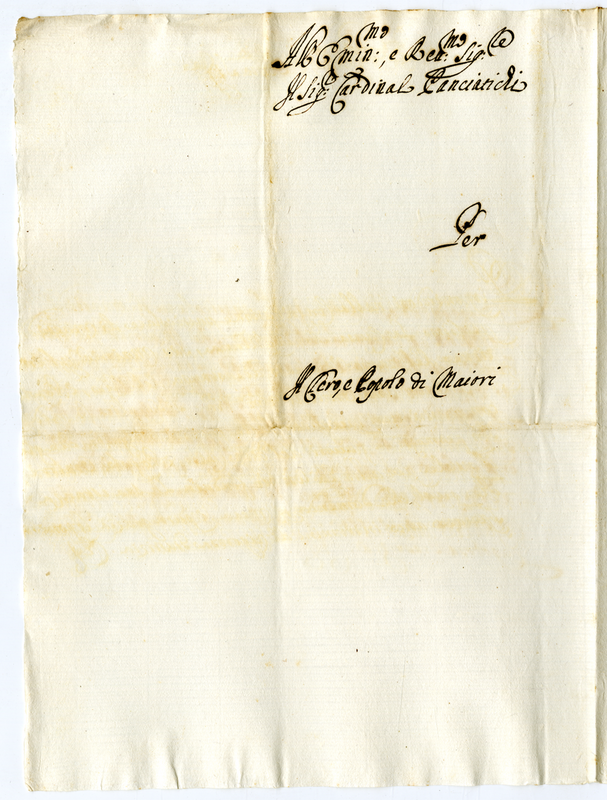 All'Emin:mo, e Reu:mo Sig:re
Il Sig:r Cardinal Panciatichi
Per
Il Clero, e Popolo di Maiori